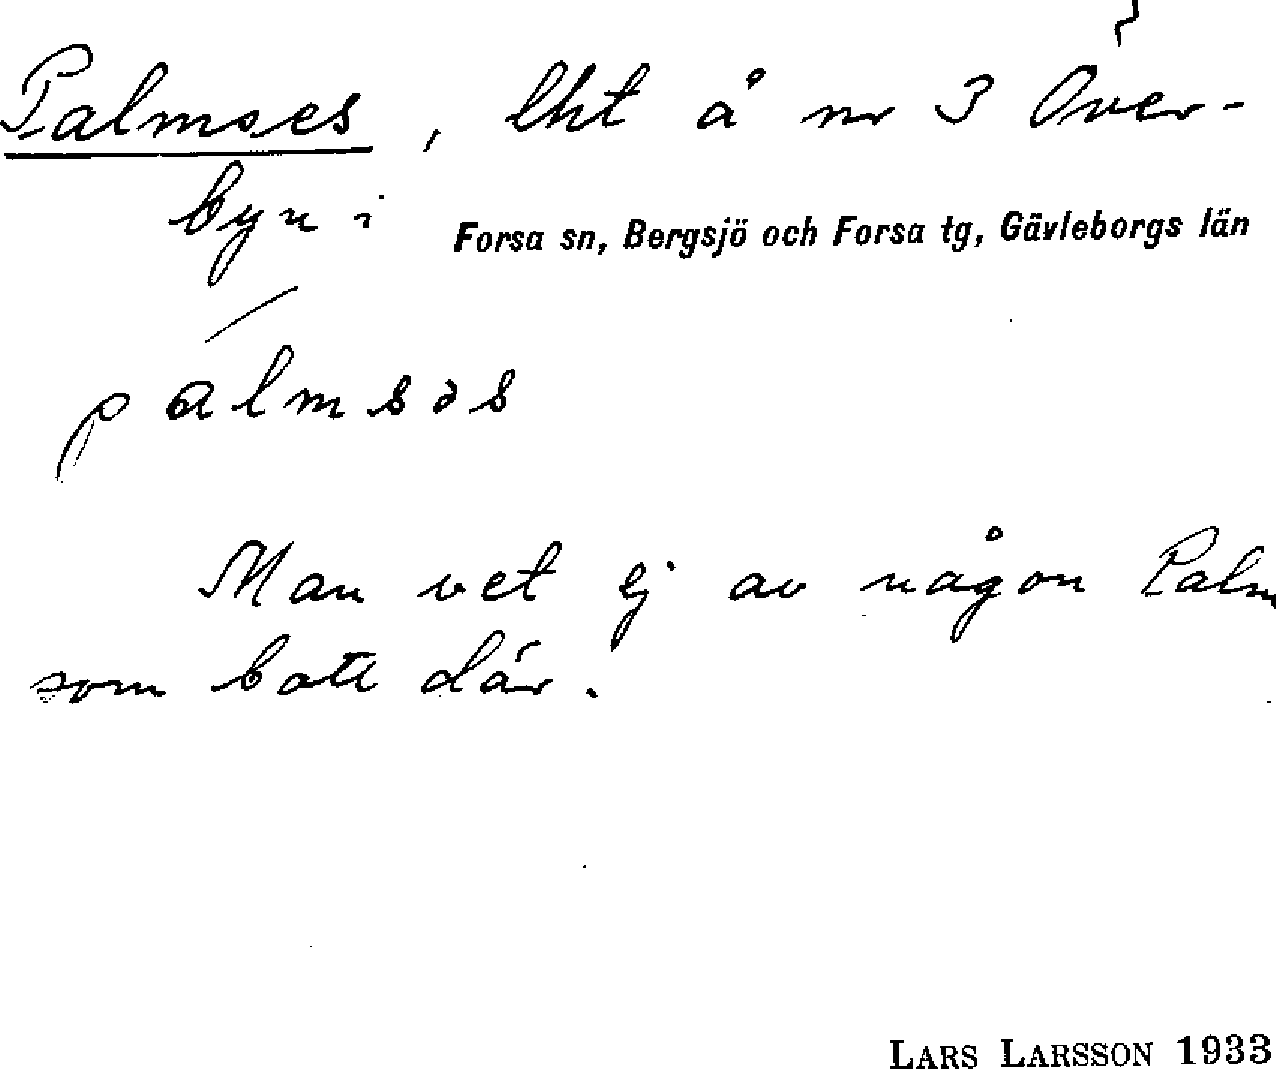 Palmses, lht å nr 3 Över-
byn i Forsa sn, Bergsjö och Forsa tg, Gävleborgs län
pálmsəs
Man vet ej av någon Palm
som bott där.
LARS LARSSON 1933